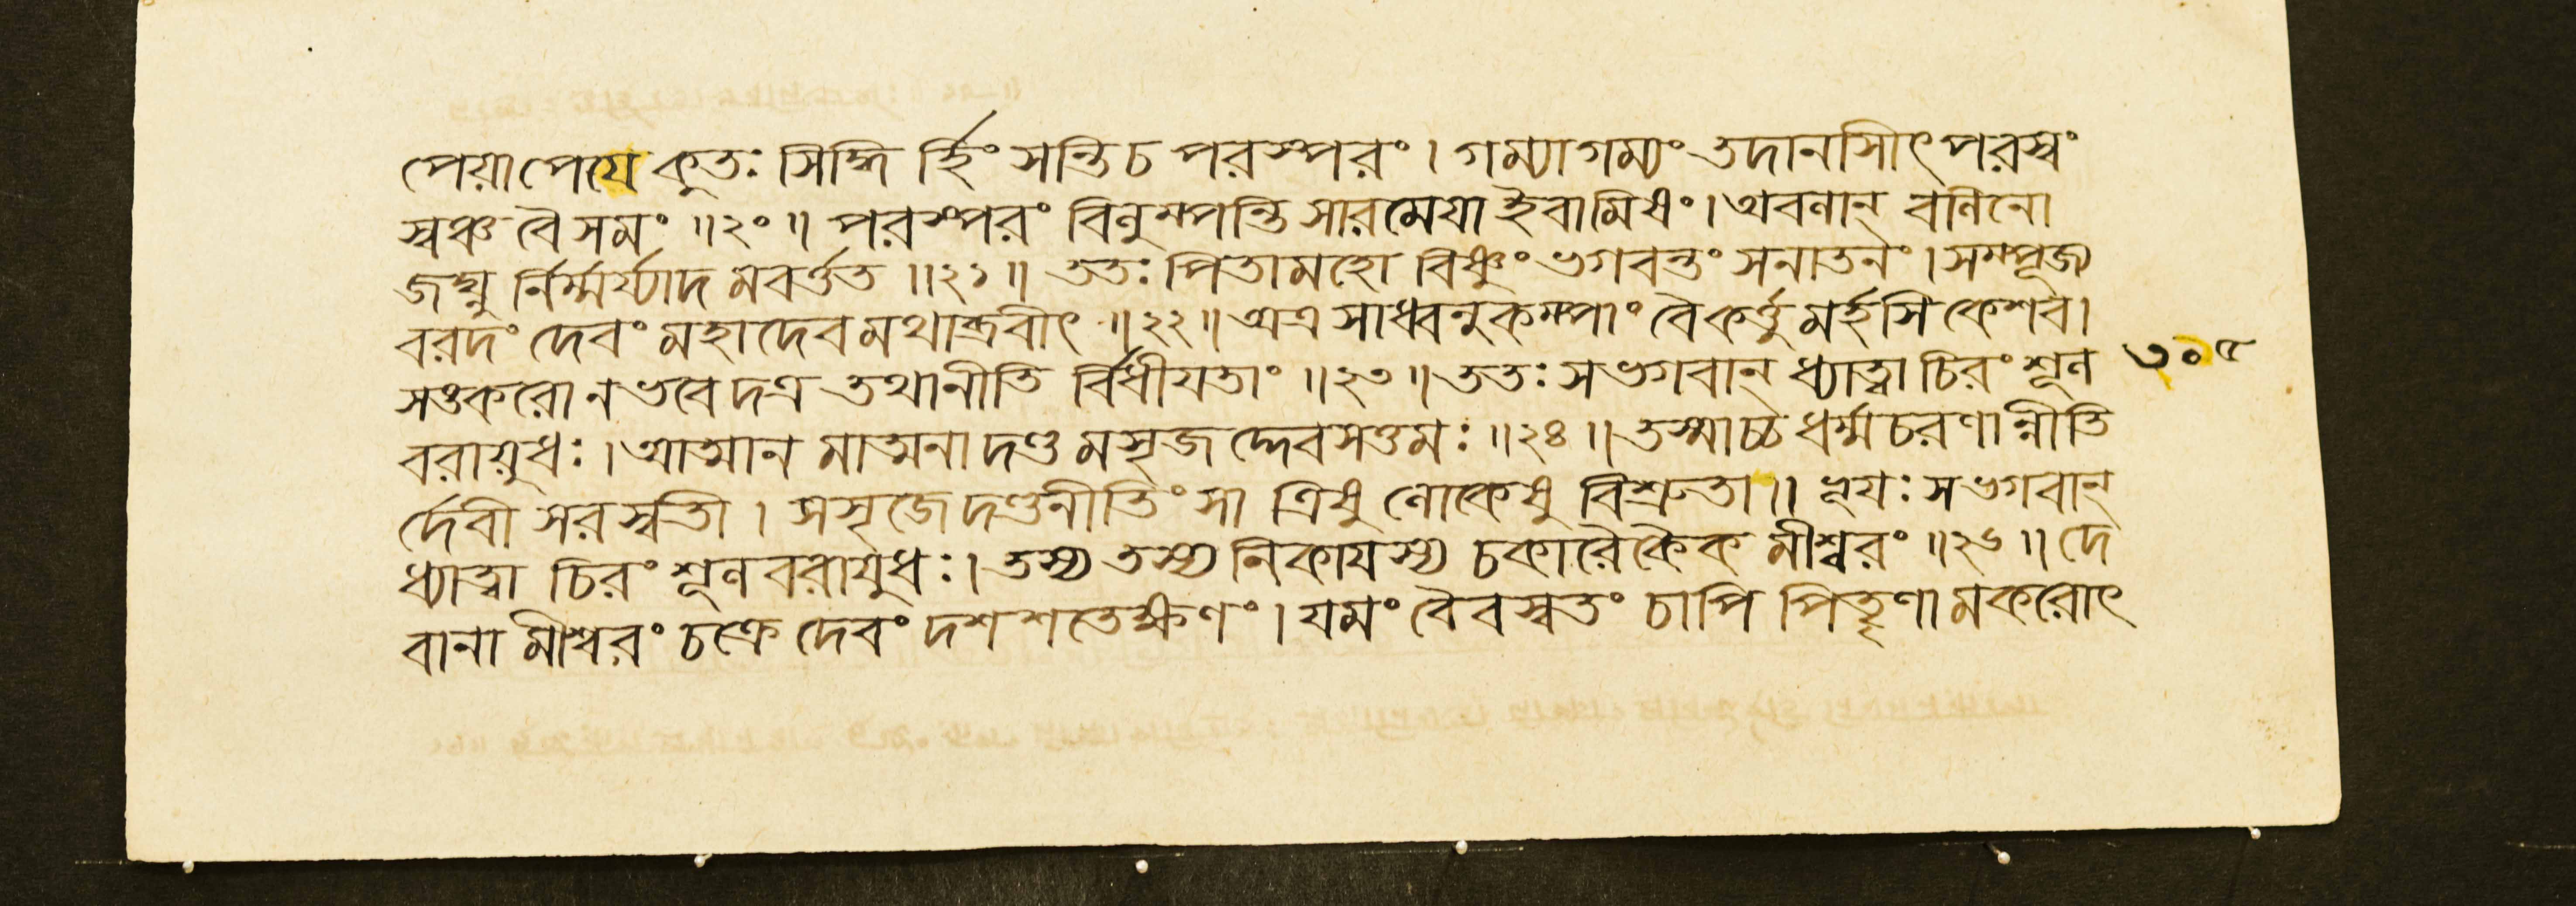 পেয়াপেযে কুতঃ সিদ্ধি র্হিংসন্তি চ পরস্পরং । গম্যাগম্যং তদানাসীৎ পরস্বং
স্বঞ্চ বৈ সমং ॥২০॥ পরস্পরং বিলুম্পন্তি সারমেযা ইবামিষং । অবলান্ বলিনো
জঘ্নু র্নির্ম্মর্য্যাদ মবর্ত্তত ॥২১॥ ততঃ পিতামহো বিষ্ণুং ভগবন্তং সনাতনং । সম্পূজ্য
বরদং দেবং মহাদেব মথাব্রবীৎ ॥২২॥ অত্র সাধ্বনুকম্পাং বৈ কর্ত্তু মর্হসি কেশব ।
সঙ্করো ন ভবে দত্র তথানীতি র্বিধীযতাং ॥২৩॥ ততঃ স ভগবান্ ধ্যাত্বা চিরং শূল ৩০৫
বরাযুধঃ । আত্মান মাত্মনা দণ্ড মসৃজ দ্দেবসত্তমঃ ॥২৪॥ তস্মাচ্চ ধর্ম্মচরণান্নীতি
র্দেবী সরস্বতী । সসৃজে দণ্ডনীতিং সা ত্রিষু লোকেষু বিশ্রুতা ॥ ভূযঃ স ভগবান্
ধ্যাত্বা চিরং শূলবরাযুধঃ । তস্য তস্য নিকাযস্য চকারৈকৈক মীশ্বরং ॥২৬॥ দে
বানা মীশ্বরং চক্রে দেবং দশশতেক্ষণং । যমং বৈবস্বতং চাপি পিতৄণা মকরোৎ